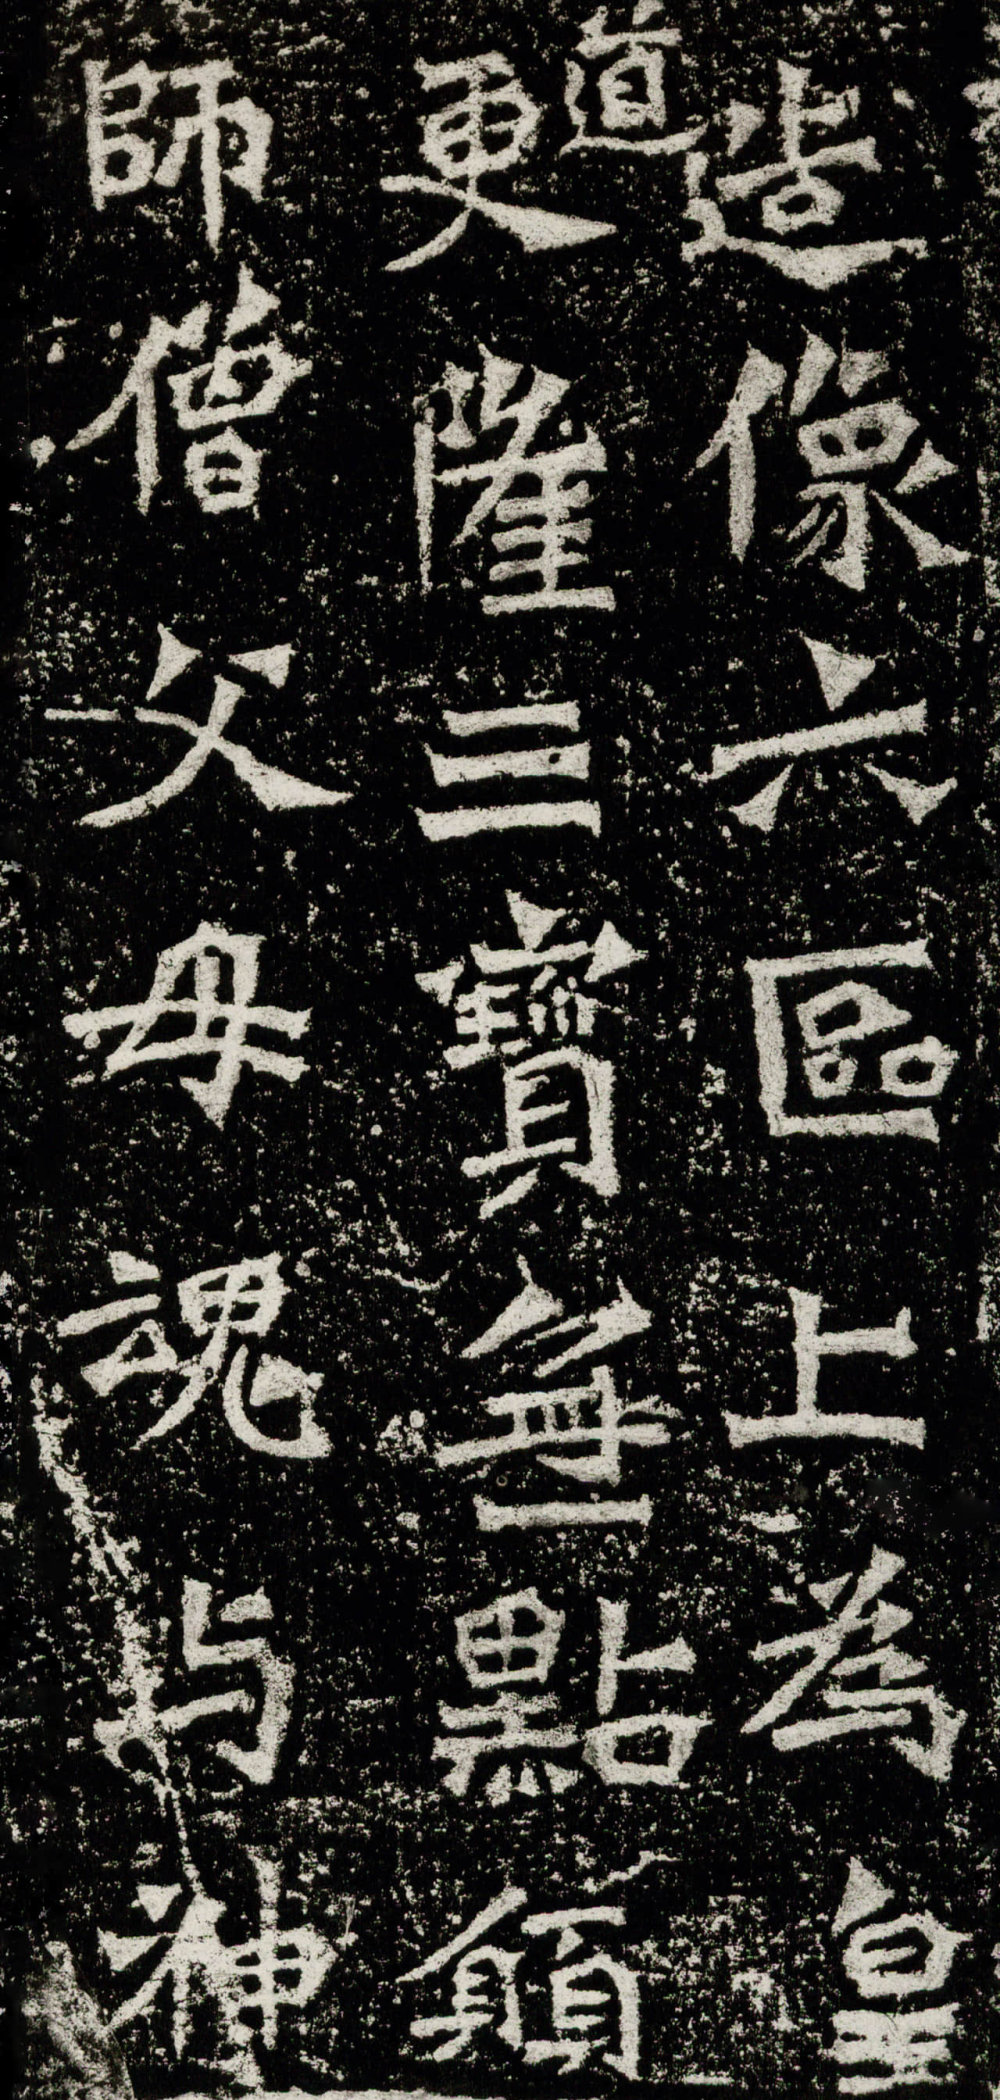 造像六區上為皇
道更隆三寶無點願
師僧父母魂与神